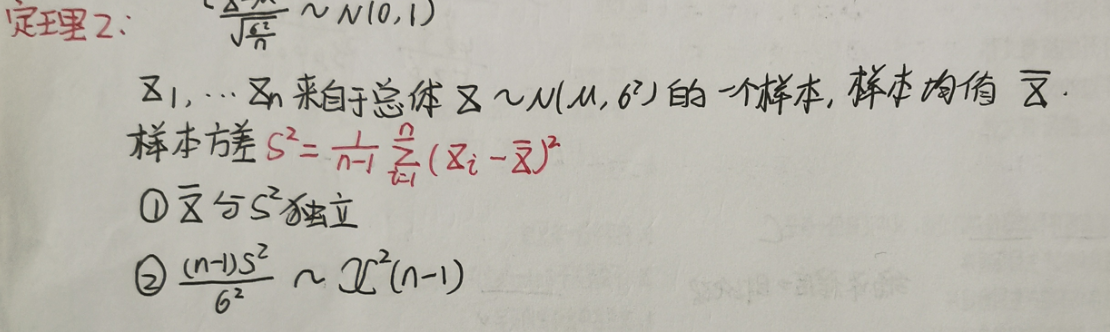 定理2: (X̄-μ)/√(σ²/n) ~ N(0,1)
X₁, … Xₙ 来自于总体 X ~ N(μ, σ²) 的一个样本, 样本均值 X̄.
样本方差 S² = 1/(n-1) Σᵢ₌₁ⁿ (Xᵢ - X̄)²
① X̄ 与 S² 独立
② (n-1)S²/σ² ~ χ²(n-1)